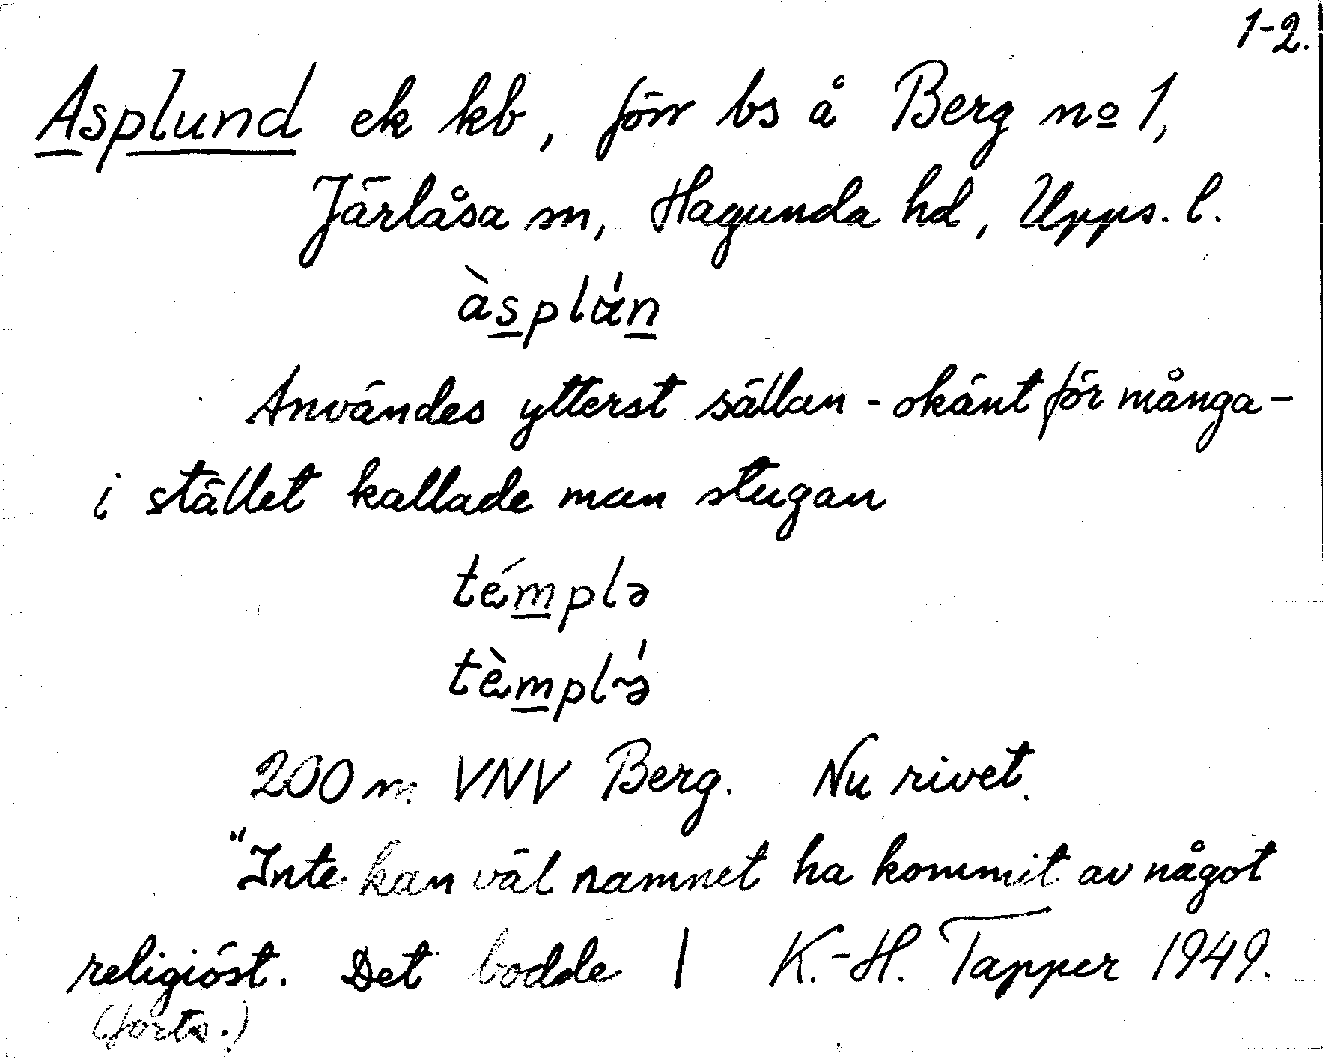 1-2.
Asplund ek kb, förr bs å Berg nº 1,
Järlåsa sn, Hagunda hd, Upps. l.
àsplán
Användes ytterst sällan - okänt för många -
i stället kallade man stugan
témplə
tèmplə́
200 m VNV Berg. Nu rivet.
"Inte kan väl namnet ha kommit av något
religiöst. Det bodde | K.-H. Tapper 1949.
(forts.)